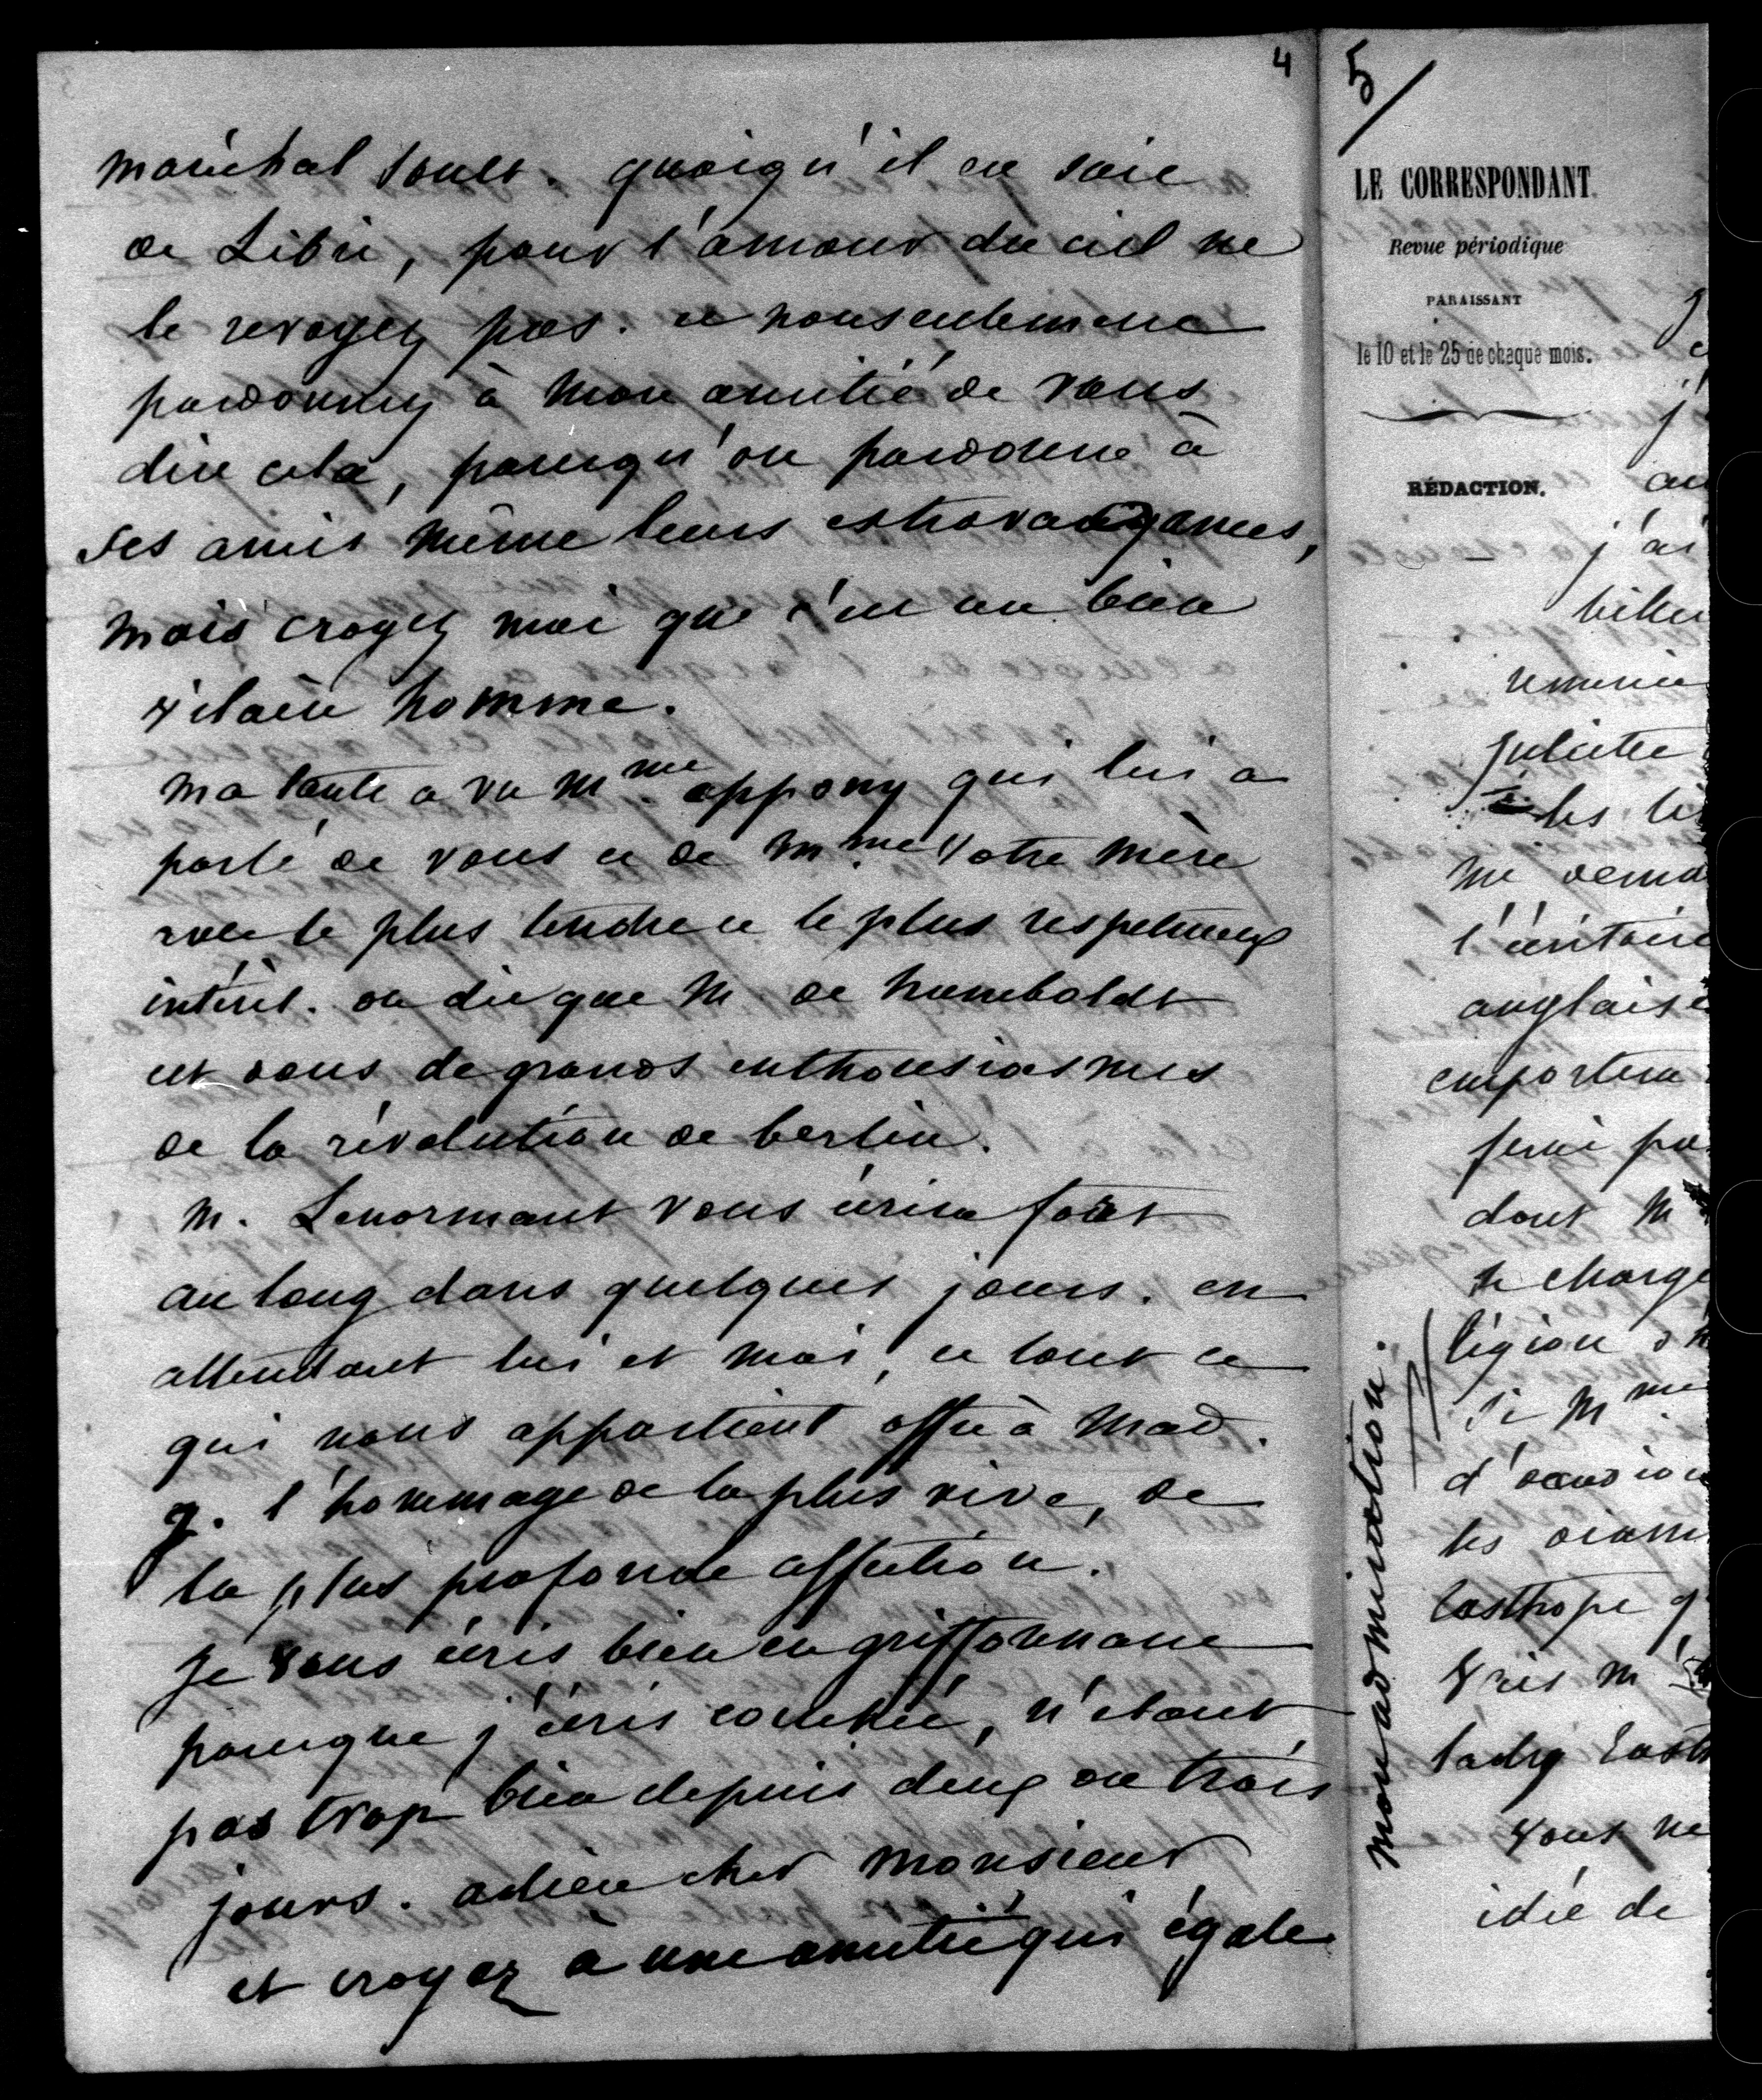 4
maréchal Soult. quoiqu'il en soit
de Libri, pour l'amour du ciel ne
le revoyez pas. et non seulement
pardonnez à mon amitié de vous
dire cela, puisqu'on pardonne à
ses amis même leurs extravagances,
mais croyez moi que c'est un bien
vilain homme.
ma tante a vu Mme appony qui lui a
parlé de vous et de Mme votre mère
avec le plus tendre et le plus respectueux
intérêt. on dit que M. de humboldt
est dans de grands enthousiasmes
de la révolution de berlin.
M. Lenormant vous écrira fort
au long dans quelques jours. en
attendant lui et moi, et tout ce
qui nous appartient offre à Mad.
g. l'hommage de la plus vive, de
la plus profonde affection.
Je vous écris bien en griffonnant
parceque j'écris couchée, n'étant
pas trop bien depuis deux ou trois
jours. adieu cher Monsieur
et croyez à une amitié qui égale
mon admiration.
5
LE CORRESPONDANT.
Revue périodique
PARAISSANT
le 10 et le 25 de chaque mois.
RÉDACTION.
j'ai
remercie
Juliette
les
me
anglaise
dont M
se charge
légion
Si Mme
les
lady
vous ne
idée de